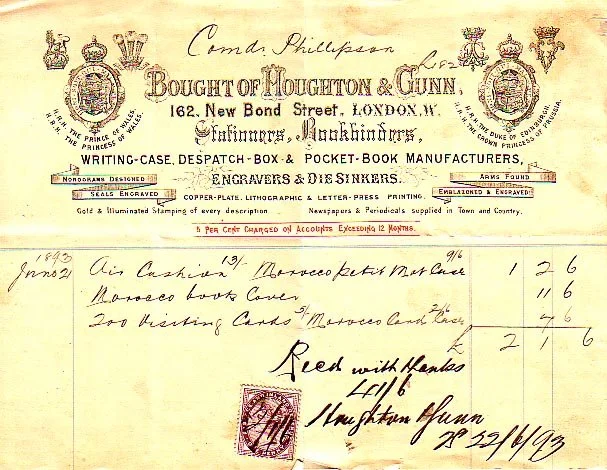 Comdr Phillipson
BOUGHT OF HOUGHTON & GUNN,
162, New Bond Street, LONDON, W.
Stationers, Bookbinders,
WRITING-CASE, DESPATCH-BOX & POCKET-BOOK MANUFACTURERS,
ENGRAVERS & DIE SINKERS.
COPPER-PLATE, LITHOGRAPHIC & LETTER-PRESS PRINTING.
H.R.H. THE PRINCE OF WALES.
H.R.H. THE PRINCESS OF WALES.
H.R.H. THE DUKE OF EDINBURGH.
H.R.H. THE CROWN PRINCESS OF PRUSSIA.
MONOGRAMS DESIGNED
SEALS ENGRAVED
ARMS FOUND
EMBLAZONED & ENGRAVED
Gold & Illuminated Stamping of every description. Newspapers & Periodicals supplied in Town and Country.
5 PER CENT CHARGED ON ACCOUNTS EXCEEDING 12 MONTHS.
1893
June 21 Air Cushion 13/- Morocco Case 9/6 1 2 6
Morocco book Cover 11 6
200 Visiting Cards 5/ Morocco Card Case 2/6 7 6
£ 2 1 6
Recd with thanks
41/6
Houghton & Gunn
22/6/93